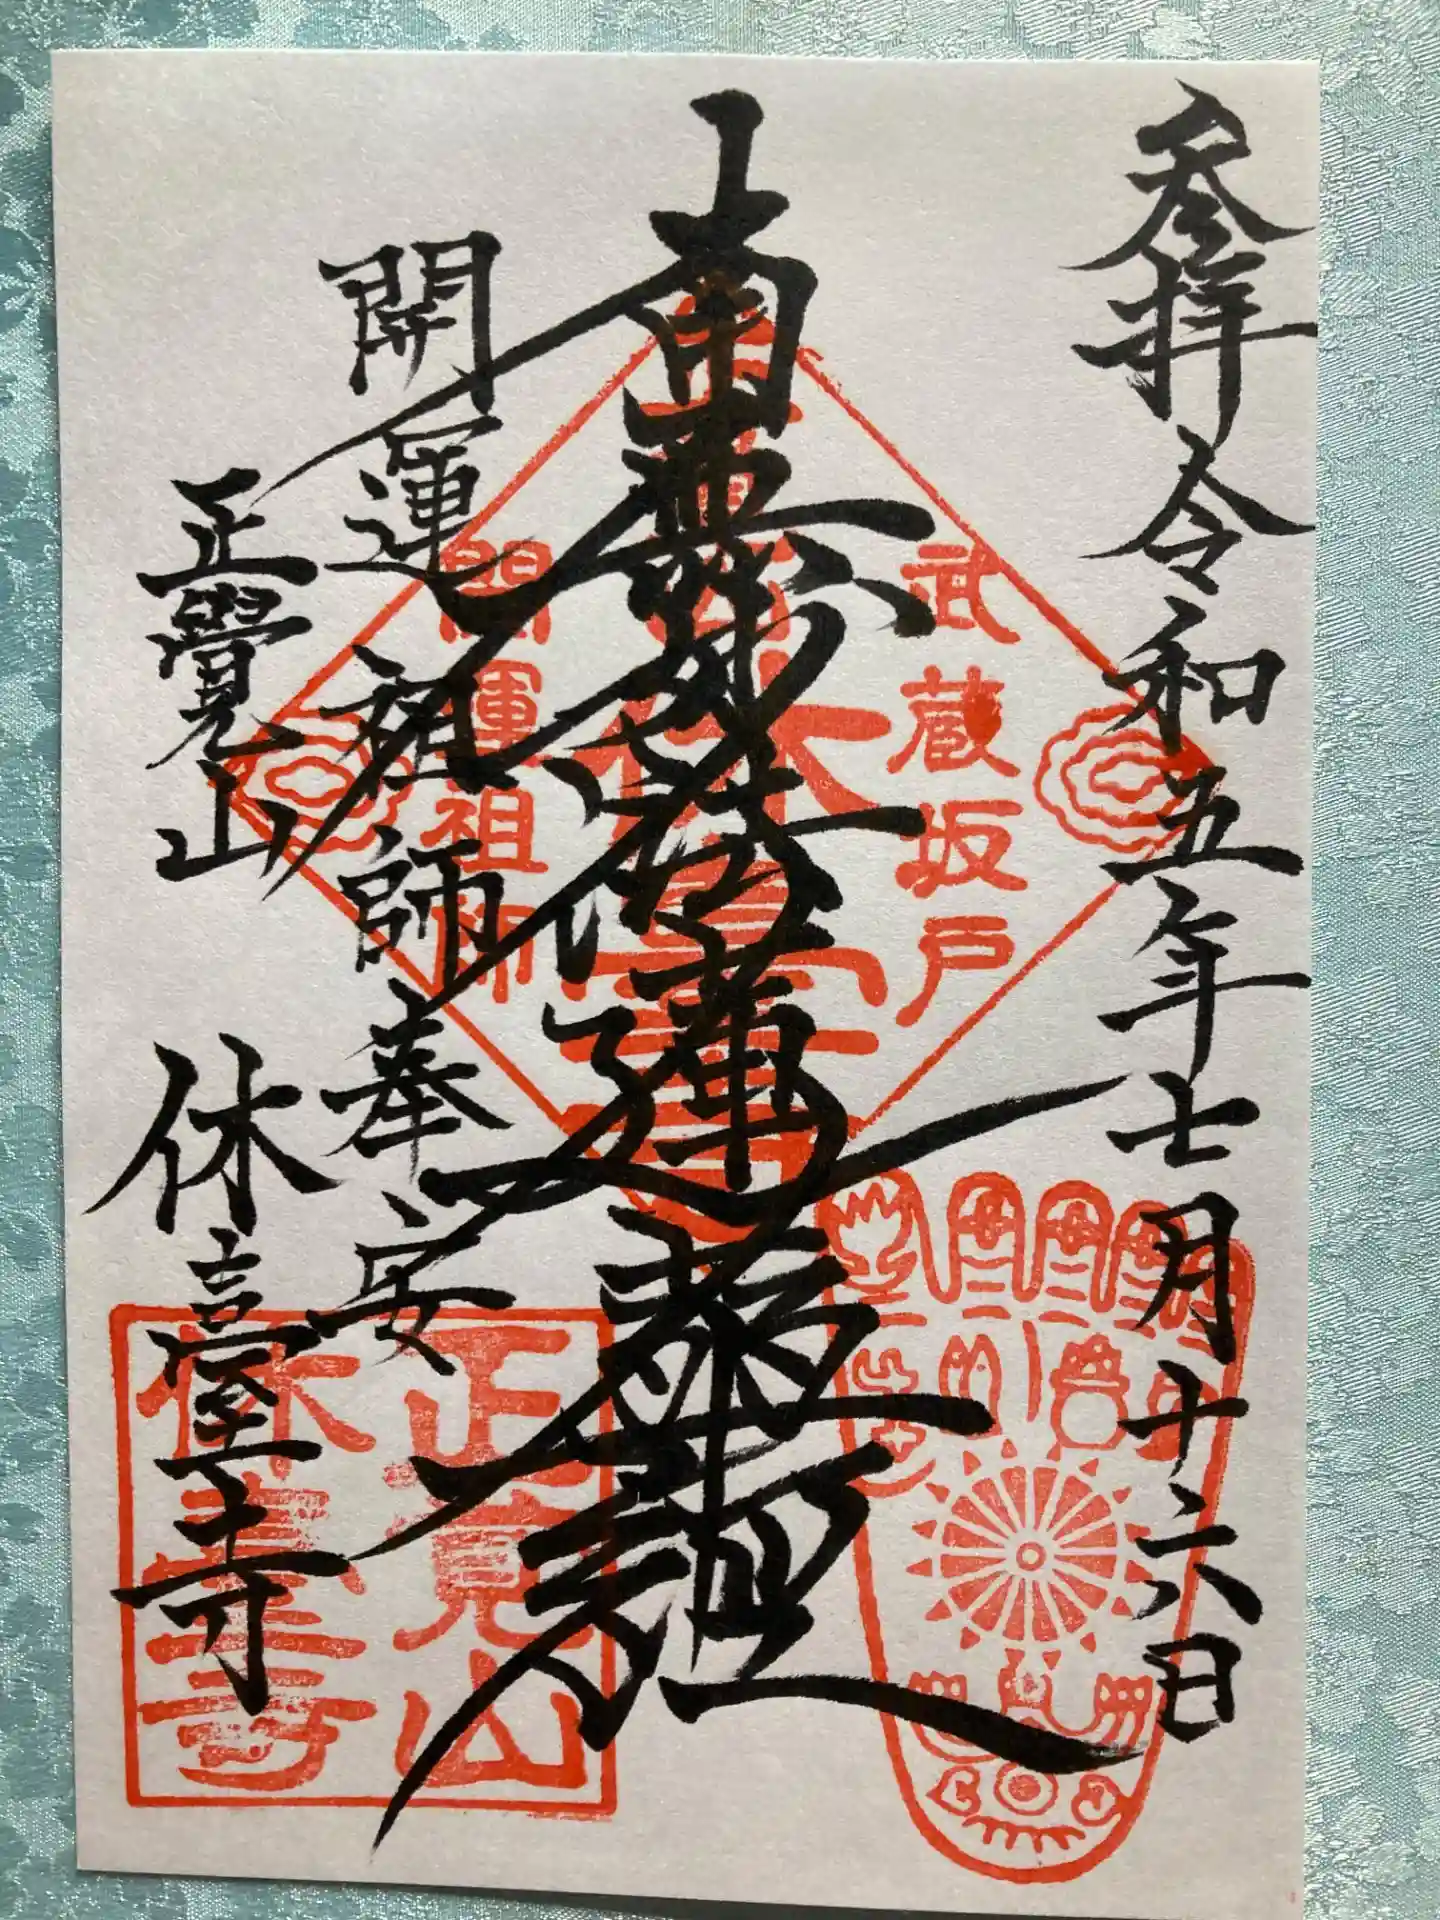 参拝令和五年七月十六日
南無妙法蓮華経
開運祖師奉安
正覺山 休臺寺
武蔵坂戸
開運祖師
正覚山
休臺寺